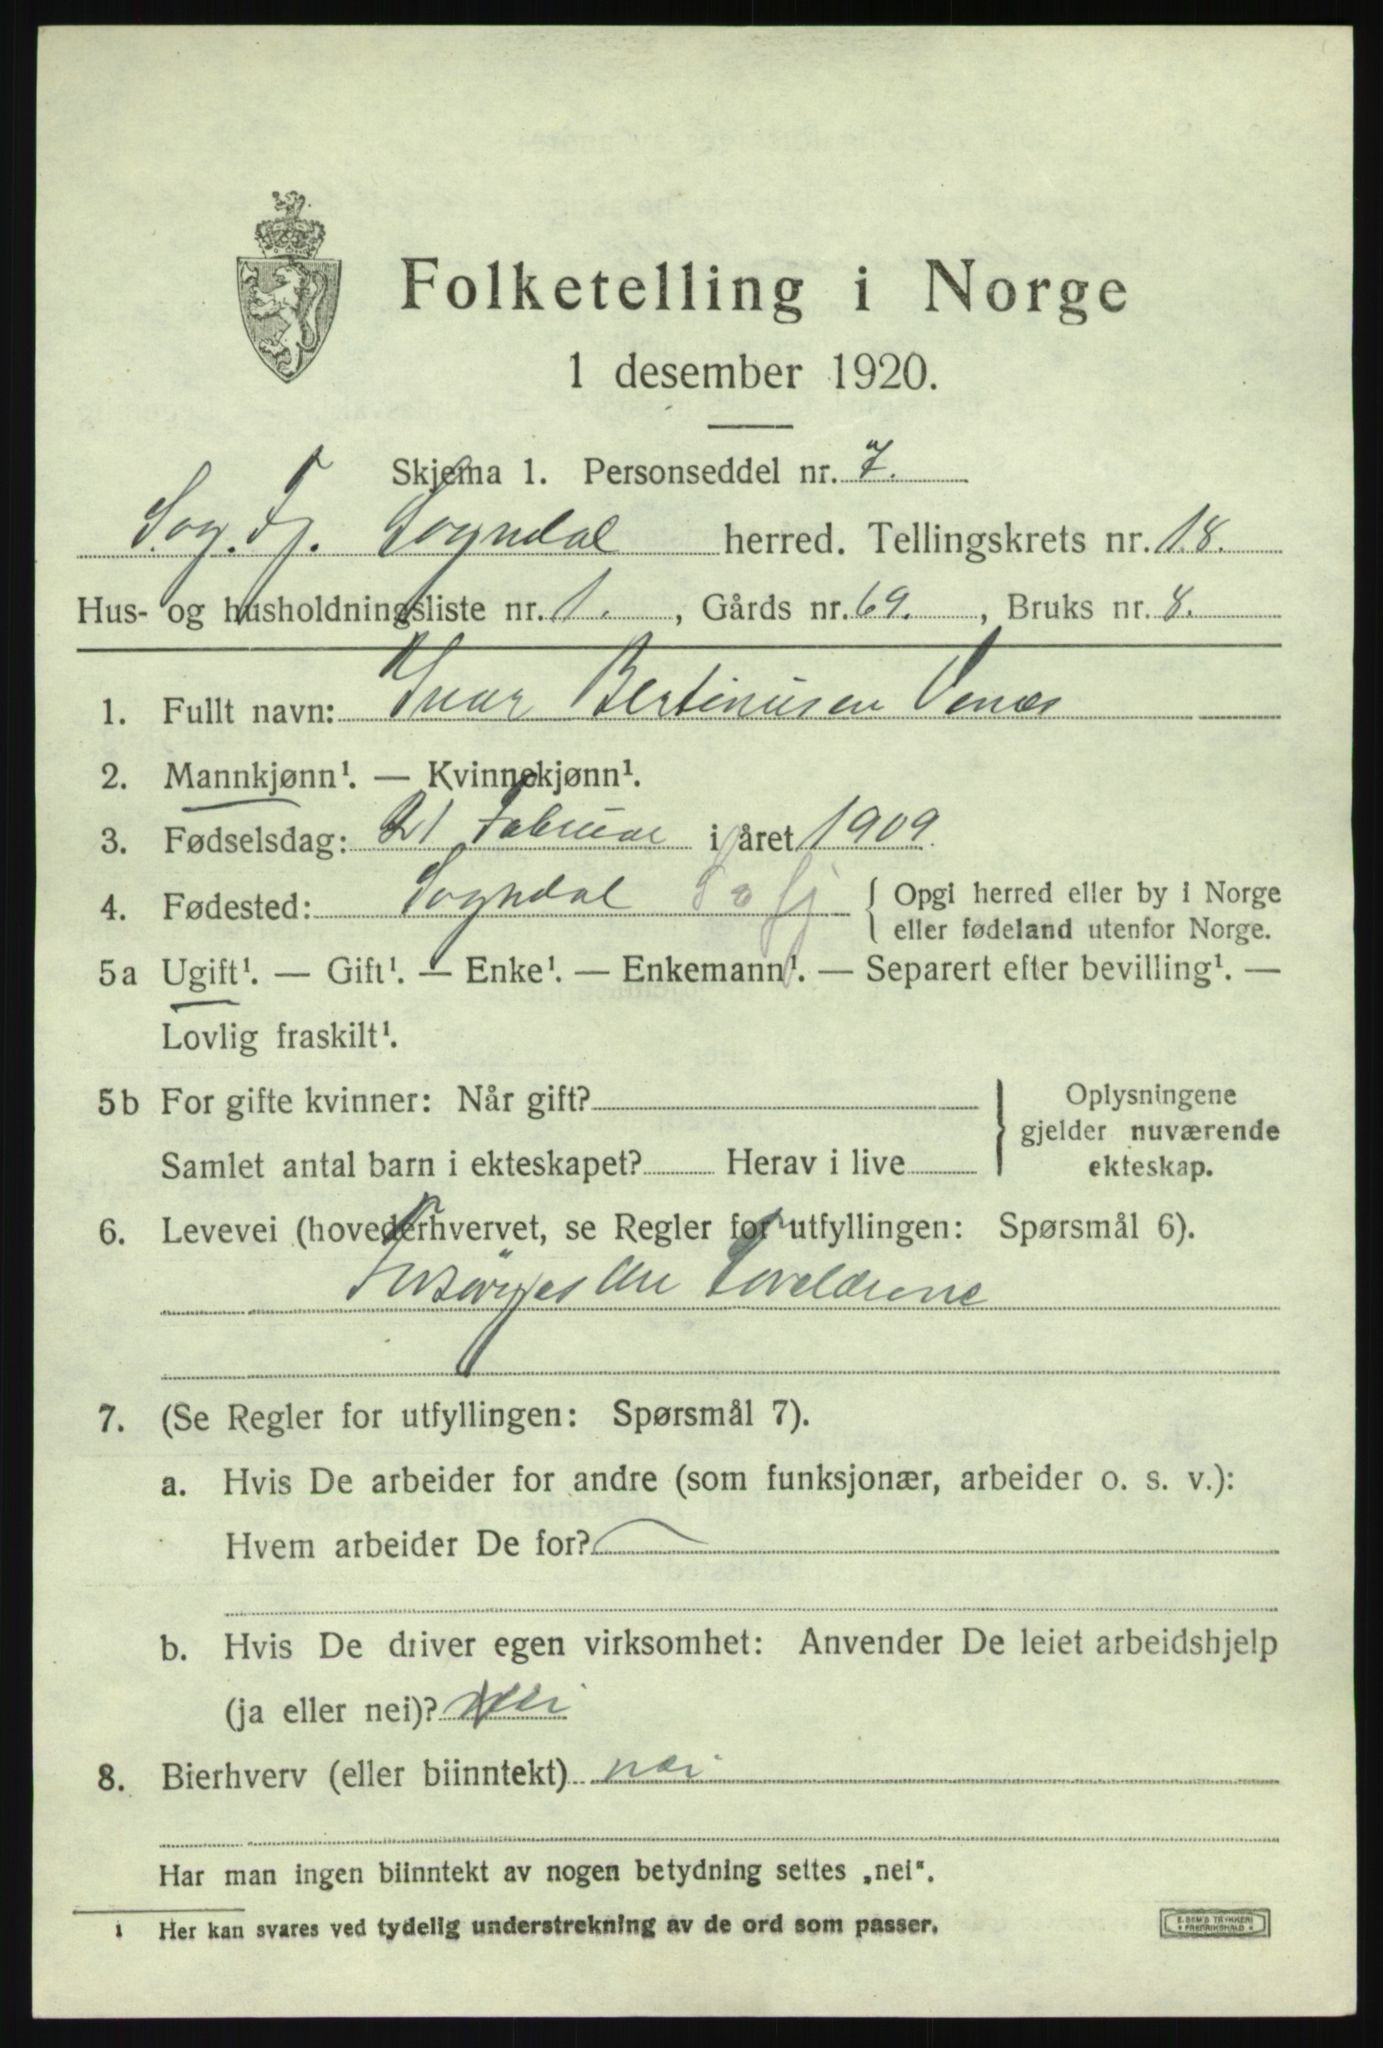 Folketelling i Norge
1 desember 1920.
Skjema 1. Personseddel nr. 7.
Sog. Fj. Sogndal herred. Tellingskrets nr. 18.
Hus- og husholdningsliste nr. 1., Gårds nr. 69., Bruks nr. 8.
1. Fullt navn: Ivar Bertinusen Venæs
2. Mannkjønn¹. — Kvinnekjønn¹.
3. Fødselsdag: 21 Februar i året 1909.
4. Fødested: Sogndal So fj { Opgi herred eller by i Norge
eller fødeland utenfor Norge.
5a Ugift¹. — Gift¹. — Enke¹. — Enkemann¹. — Separert efter bevilling¹. —
Lovlig fraskilt¹.
5b For gifte kvinner: Når gift?
Samlet antal barn i ekteskapet? Herav i live
} Oplysningene
gjelder nuværende
ekteskap.
6. Levevei (hovederhvervet, se Regler for utfyllingen: Spørsmål 6).
Forsørges av Forældrene
7. (Se Regler for utfyllingen: Spørsmål 7).
a. Hvis De arbeider for andre (som funksjonær, arbeider o. s. v.):
Hvem arbeider De for?
b. Hvis De driver egen virksomhet: Anvender De leiet arbeidshjelp
(ja eller nei)? nei
8. Bierhverv (eller biinntekt) nei
Har man ingen biinntekt av nogen betydning settes „nei".
1 Her kan svares ved tydelig understrekning av de ord som passer.
E. SEM'S TRYKKERI
FREDRIKSHALD